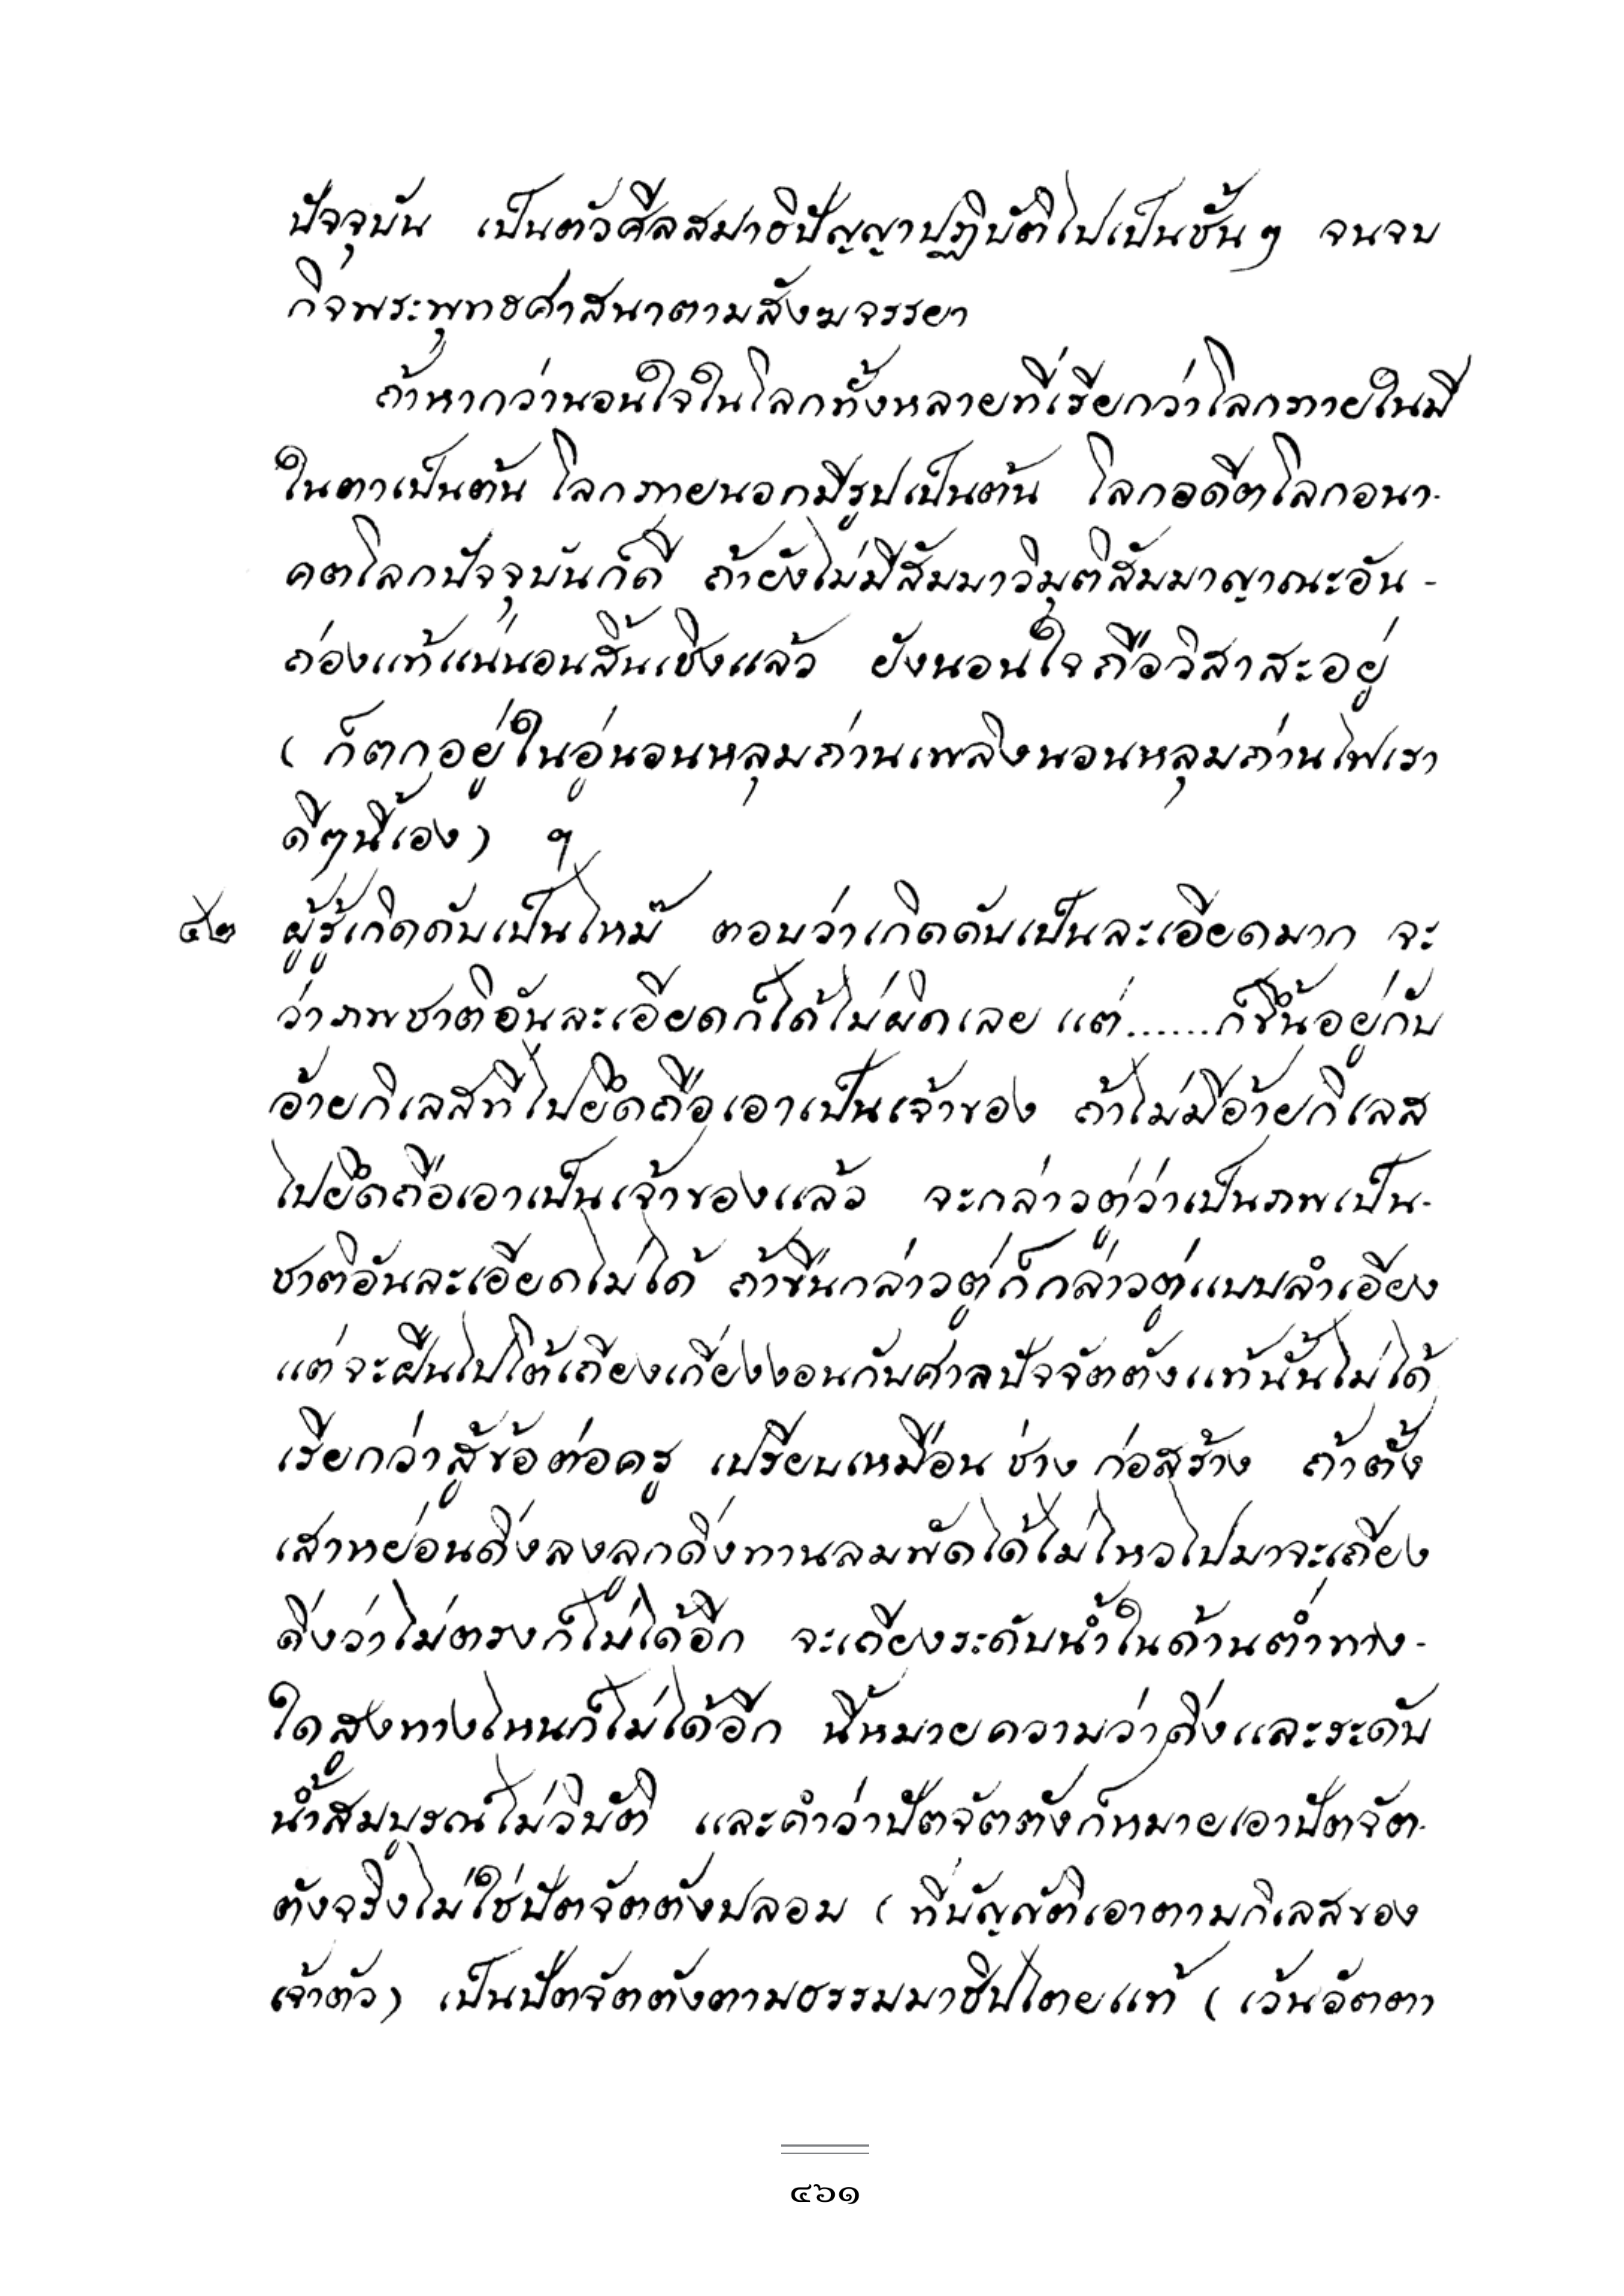 ปัจจุบัน เป็นตัวศีลสมาธิปัญญาปฏิบัติไปเป็นชั้นๆ จนจบ
กิจพระพุทธศาสนาตามสังฆจรรยา
ถ้าหากว่านอนใจในโลกทั้งหลายที่เรียกว่าโลกภายในมี
ในตาเป็นต้น โลกภายนอกมีรูปเป็นต้น โลกอดีตโลกอนา-
คตโลกปัจจุบันก็ดี ถ้ายังไม่มีสัมมาวิมุติสัมมาญาณะอัน-
ถ่องแท้แน่นอนสิ้นเชิงแล้ว ยังนอนใจถือวิสาสะอยู่
( ก็ตกอยู่ในอู่นอนหลุมถ่านเพลิงนอนหลุมถ่านไฟเรา
ดีๆนี้เอง) ฯ
๕๒ ผู้รู้เกิดดับเป็นไหม๊ ตอบว่าเกิดดับเป็นละเอียดมาก จะ
ว่าภพชาติอันละเอียดก็ได้ไม่ผิดเลย แต่.......ก็ขึ้นอยู่กับ
อ้ายกิเลสที่ไปยึดถือเอาเป็นเจ้าของ ถ้าไม่มีอ้ายกิเลส
ไปยึดถือเอาเป็นเจ้าของแล้ว จะกล่าวตู่ว่าเป็นภพเป็น-
ชาติอันละเอียดไม่ได้ ถ้าขืนกล่าวตู่ก็กล่าวตู่แบบลำเอียง
แต่จะฝืนไปโต้เถียงเกี่ยงงอนกับศาลปัจจัตตังแท้นั้นไม่ได้
เรียกว่าสู้ข้อต่อครู เปรียบเหมือนช่างก่อสร้าง ถ้าตั้ง
เสาหย่อนดิ่งลงลูกดิ่งทานลมพัดได้ไม่ไหวไปมาจะเถียง
ดิ่งว่าไม่ตรงก็ไม่ได้อีก จะเถียงระดับน้ำในด้านต่ำทาง-
ใดสูงทางไหนก็ไม่ได้อีก นี้หมายความว่าดิ่งและระดับ
น้ำสมบูรณ์ไม่วิบัติ และคำว่าปัตจัตตังก็หมายเอาปัตจัต-
ตังจริงไม่ใช่ปัตจัตตังปลอม ( ที่บัญญัติเอาตามกิเลสของ
เจ้าตัว) เป็นปัตจัตตังตามธรรมมาธิปไตยแท้ ( เว้นอัตตา
๔๖๑